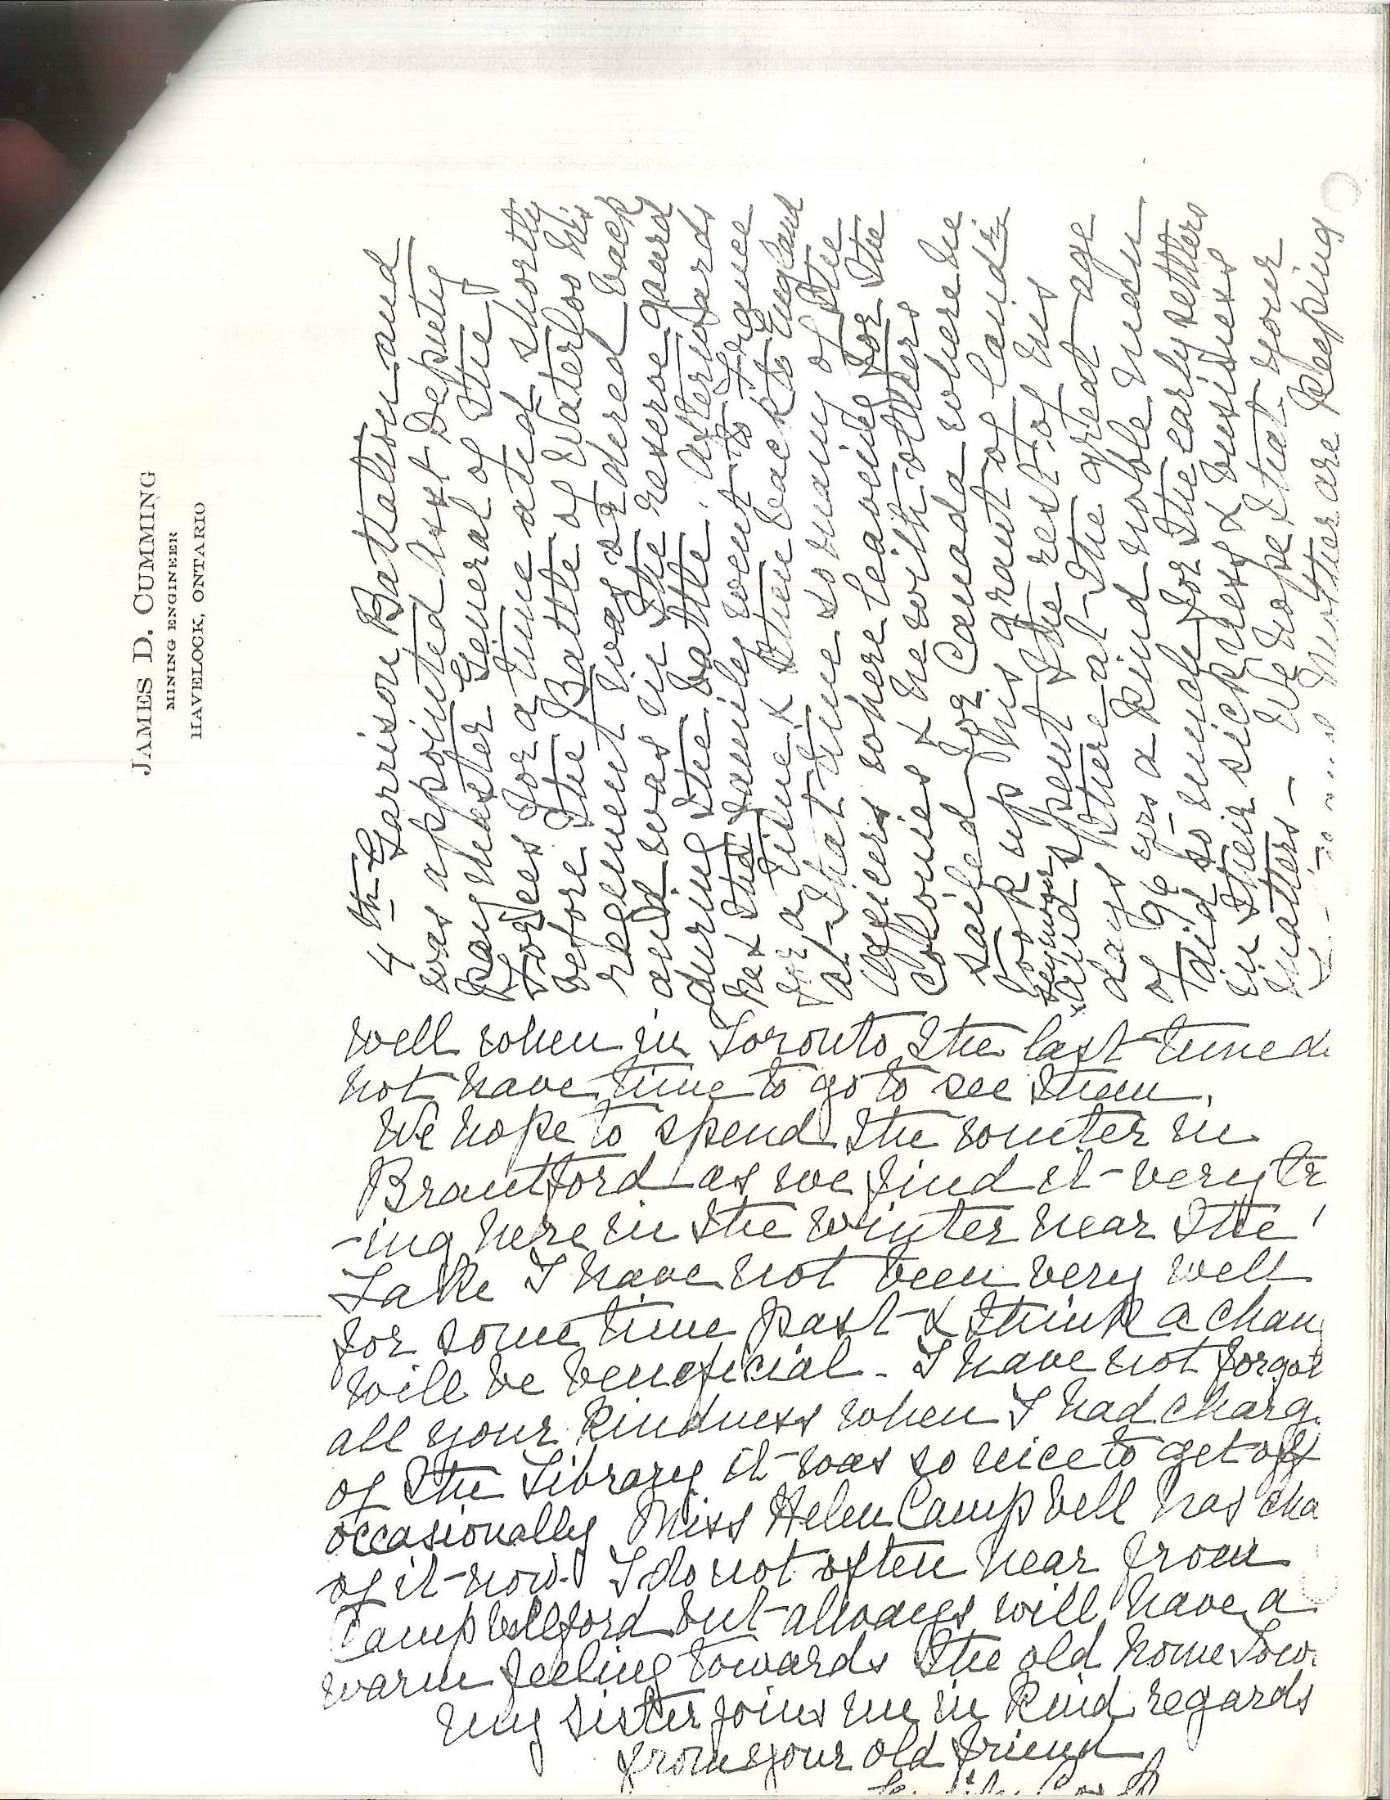 JAMES D. CUMMING
MINING ENGINEER
HAVELOCK, ONTARIO
4th Garrison Battalion and
was appointed Asst Deputy
Paymaster General of the
Forces for a time and shortly
before the Battle of Waterloo his
regiment was ordered back
and was in the reserve guard
during the battle. afterwards
he & the family went to France
for a time & then back to England
at that time so many of the
officers where leaving for the
Colonies & he with others
sailed for Canada where he
took up his grant of land in
Seymour
and spent the rest of his
days there at the great age
of 96 was a kind noble man
did so much for the early settlers
in their sickness & business
matters - We hope that your
mother are keeping
well when in Toronto the last time d
not have time to go to see them.
We hope to spend the winter in
Brantford as we find it very tr
-ing here in the winter near the
Lake I have not been very well
for some time past & think a chan
will be beneficial - I have not forgot
all your kindness when I had charg
of the Library it was so nice to get off
occasionally Miss Helen Campbell has cha
of it now. I do not often hear from
Campbellford but always will have a
warm feeling towards the old home Tow
my sister joins me in kind regards
from your old friend